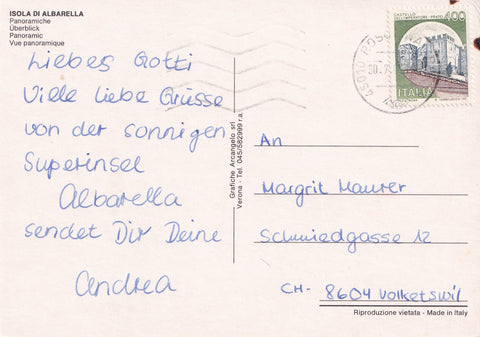 ISOLA DI ALBARELLA
Panoramiche
Überblick
Panoramic
Vue panoramique
Liebes Gotti
Viele liebe Grüsse
von der sonnigen
Superinsel
Albarella
sendet Dir Deine
Andrea
Grafiche Arcangelo srl
Verona - Tel. 045/582999 r.a.
CASTELLO
DELL'IMPERATORE - PRATO
400
ITALIA
45010 ROSO
30.7
An
Margrit Maurer
Schmiedgasse 12
CH- 8604 Volketswil
Riproduzione vietata - Made in Italy